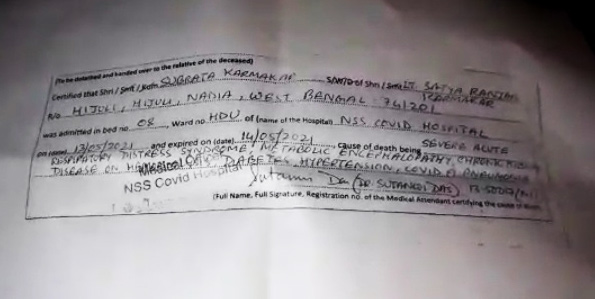 (To be detached and handed over to the relative of the deceased)
Certified that Shri / Smt / Kdm. SUBRATA KARMAKAR S/W/D of Shri / Smt LT. SATYA RANJAN KARMAKAR
R/o HIJULI, HIJULI, NADIA, WEST BENGAL 741201
was admitted in bed no. 08, Ward no. HDU, of (name of the Hospital) NSS COVID HOSPITAL
on (date) 13/05/2021 and expired on (date) 14/05/2021 cause of death being SEVERE ACUTE
RESPIRATORY DISTRESS SYNDROME, METABOLIC ENCEPHALOPATHY, CHRONIC
DISEASE ON DIABETES, HYPERTENSION, COVID PNEUMONIA
Medical
NSS Covid Hospital
Sutanu Das (DR. SUTANU DAS)
(Full Name, Full Signature, Registration no. of the Medical Attendant certifying the cause of death)